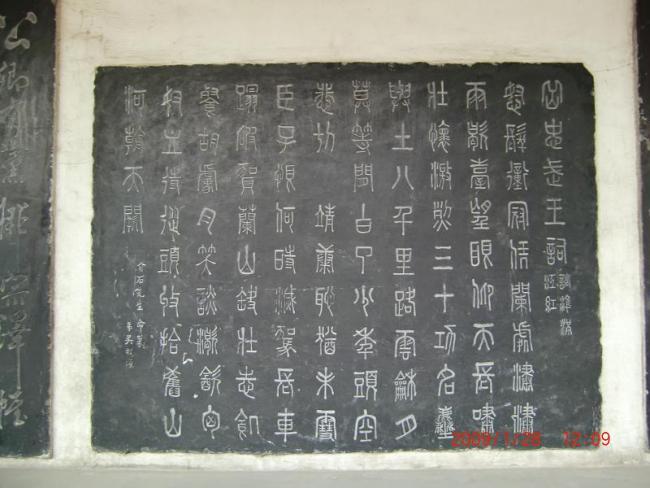 岳忠武王詞
調寄滿
江紅
怒髮衝冠憑闌處瀟瀟
雨歇臺望眼仰天長嘯
壯懷激烈三十功名塵
與土八千里路雲龢月
莫等閒白了少年頭空
悲切 靖康恥猶未雪
臣子恨何時滅駕長車
踏破賀蘭山缺壯志飢
餐胡虜肉笑談渴飲匈
奴血待從頭收拾舊山
河朝天闕
介石先生命篆
公卿有黨排宗澤帷
2009/1/28 12:09